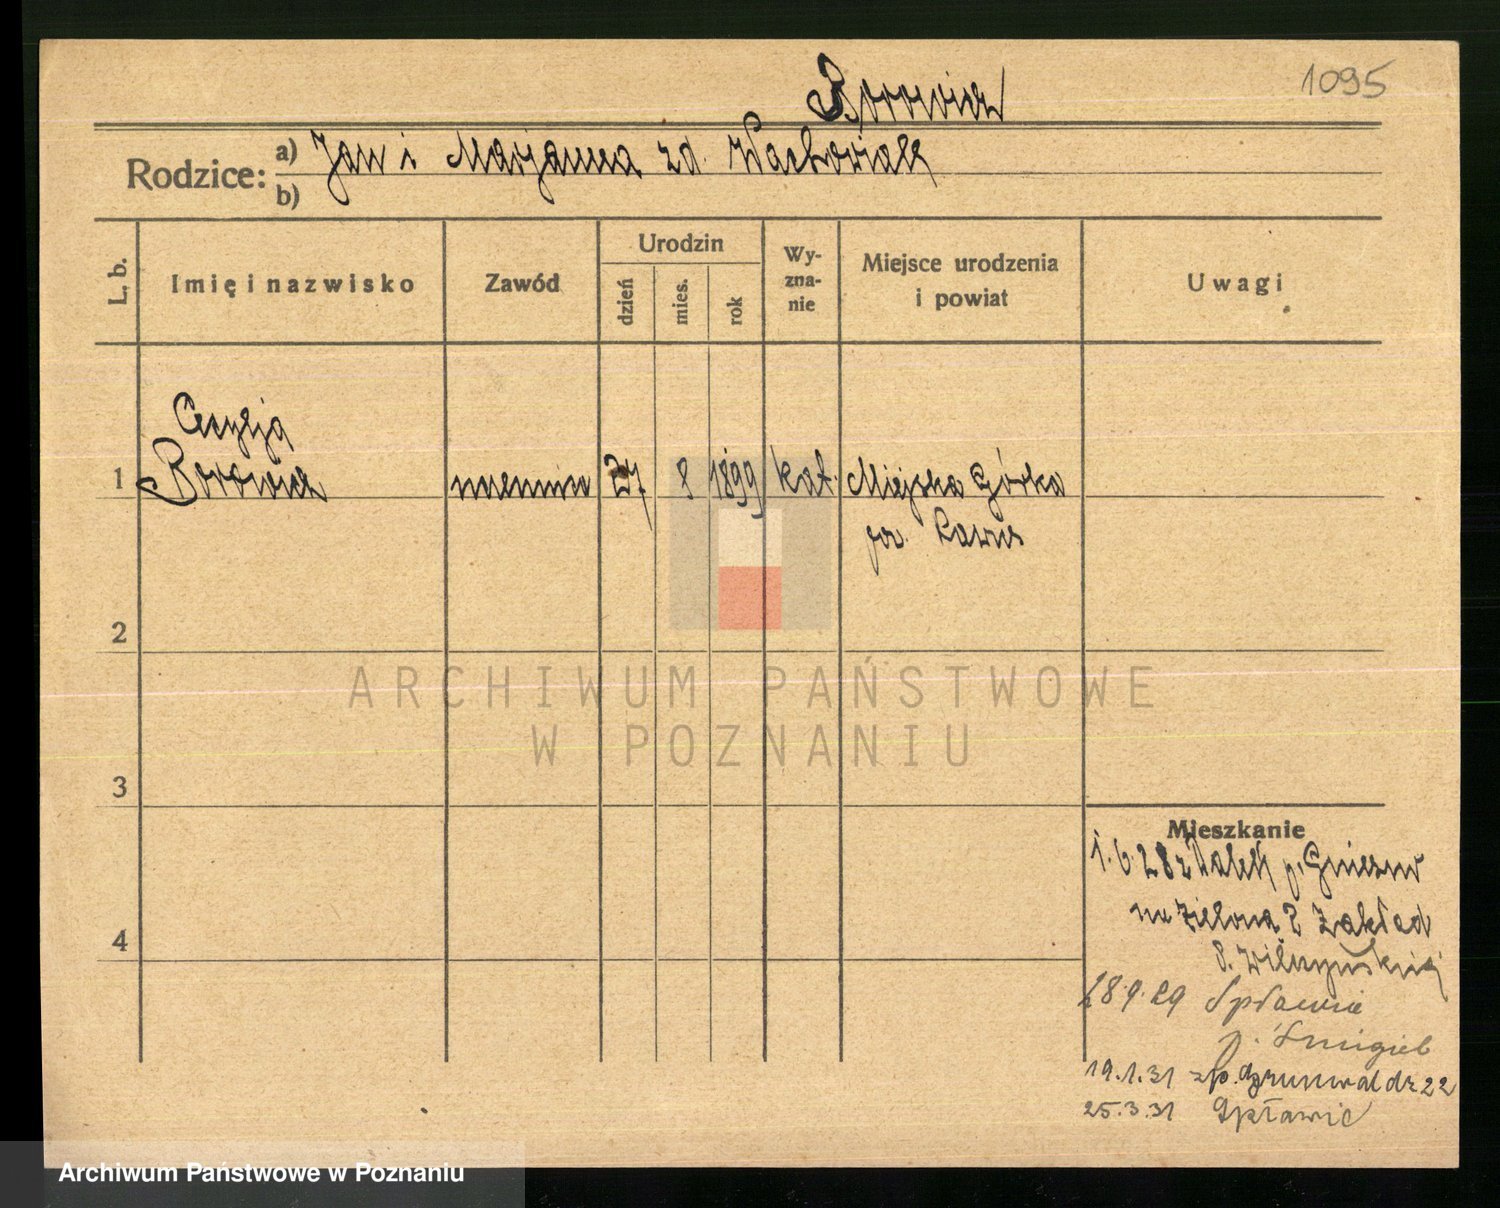 1095
Borowicz
Rodzice: a) Jan i Marjanna zd. Wachowiak
b)
L. b.
Imię i nazwisko
Zawód
Urodzin
dzień
mies.
rok
Wy-
zna-
nie
Miejsce urodzenia
i powiat
Uwagi
Cecylja
1 Borowicz 27 8 1899 kat. Miejska Górka
pow. Rawicz
2
ARCHIWUM PAŃSTWOWE
W POZNANIU
3
Mieszkanie
1.6.28 z p. Gniezno
na Zielona 2 Zakład
4
28.9.29 Spławie
p. Śmigiel
19.1.31 grunwaldz 22
25.3.31 Spławie
Archiwum Państwowe w Poznaniu